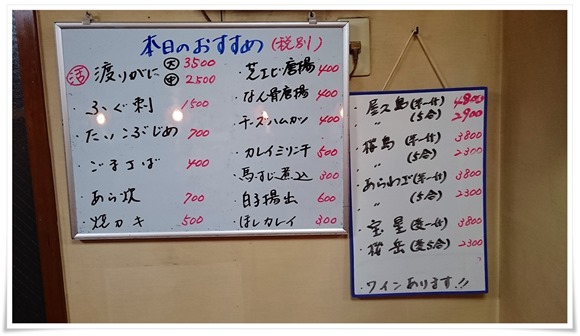 本日のおすすめ (税別)
活 渡りがに 大 3500
中 2500
・ふぐ刺 1500
・たいこぶじめ 700
・ごまさば 400
・あら炊 700
・焼カキ 500
・芝エビ唐揚 400
・なん骨唐揚 400
・チーズハムカツ 400
・カレイミリン干 500
・馬すじ煮込 300
・白子揚出 600
・ほしカレイ 300
・屋久島(芋一升) 4800
〃 (5合) 2900
・桜島(芋一升) 3800
〃 (5合) 2300
・あらわざ(芋一升) 3800
〃 (5合) 2300
・宝星(麦一升) 3800
・桜岳(麦5合) 2300
・ワインあります!!